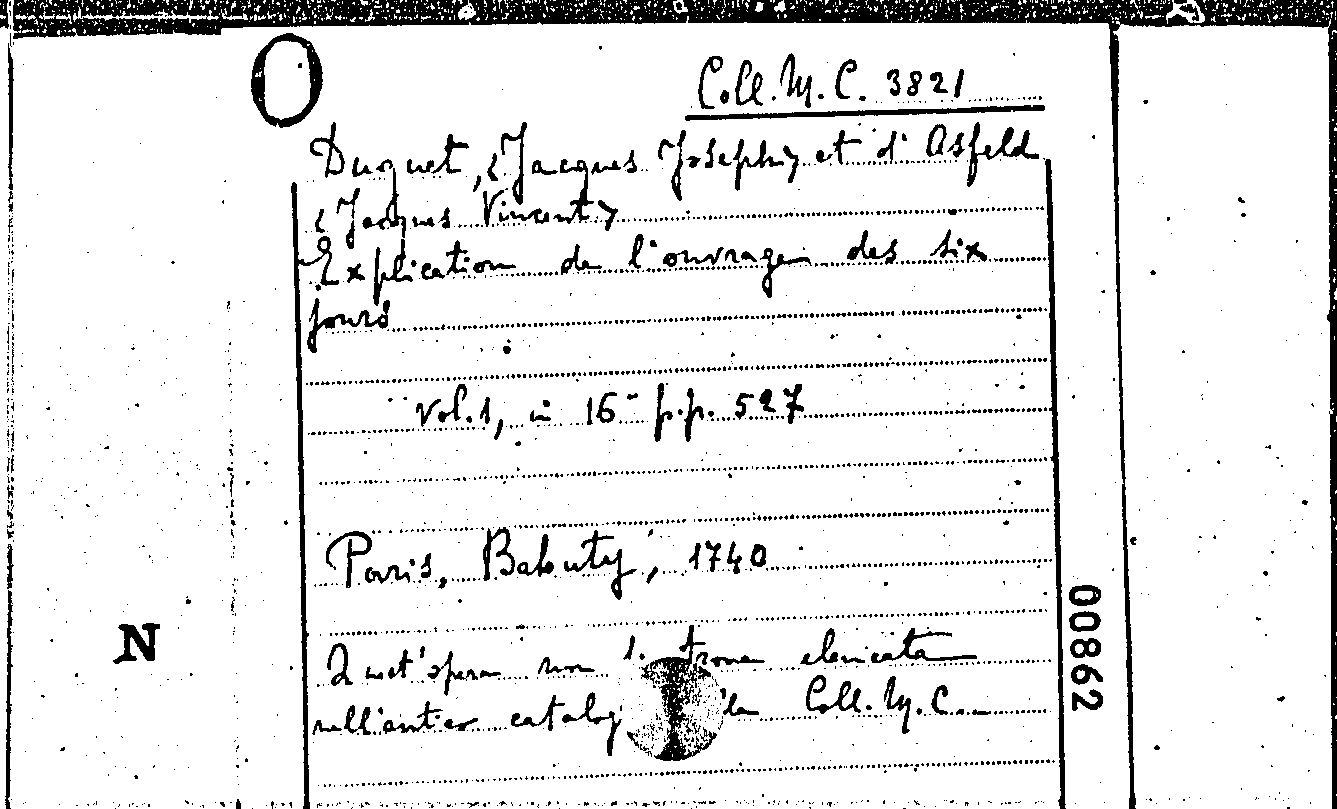 Coll. M. C. 3821
Duguet, <Jacques Joseph> et d'Asfeld
<Jacques Vincent>
Explication de l'ouvrage des six
jours
Vol. 1, in 16° p.p. 527
Paris, Babuty, 1740
Quest'opera non si trova elencata
nell'antico catalog lla Coll. M. C.
N
00862